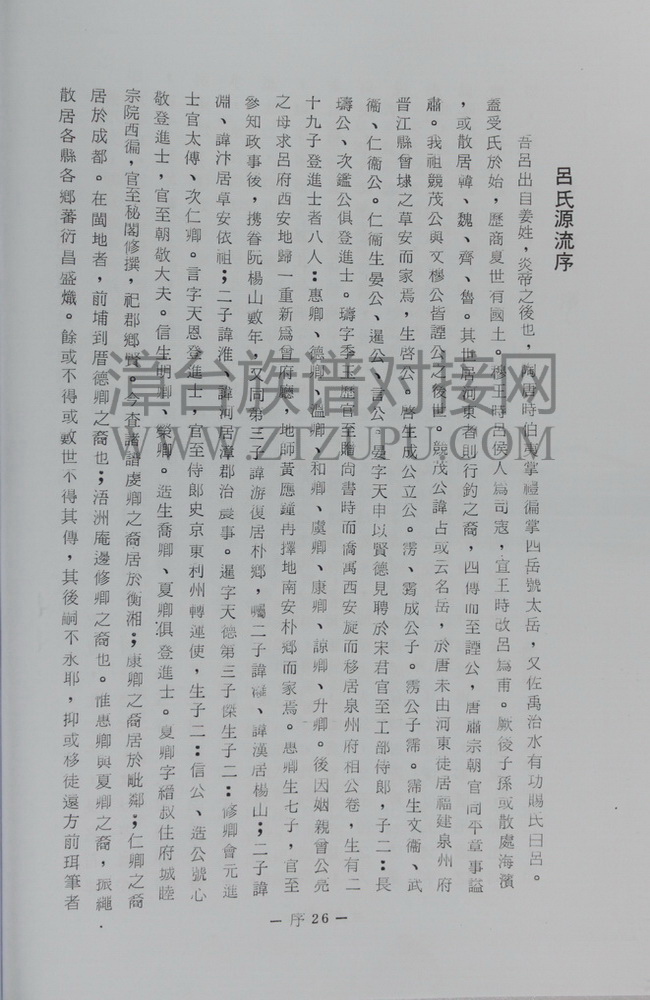 呂氏源流序
吾呂出自姜姓，炎帝之後也，陶唐時伯夷掌禮偏掌四岳號太岳，又佐禹治水有功賜氏曰呂。
蓋受氏於始，歷商夏世有國土。穆王時呂侯人為司寇，宣王時改呂為甫。厥後子孫或散處海濱
，或散居韓、魏、齊、魯。其世居河東者則行鈞之裔，四傳而至諲公，唐肅宗朝官同平章事謚
肅。我祖競茂公與文穆公皆諲公之後世。競茂公諱占或云名岳，於唐末由河東徒居福建泉州府
晉江縣曾埭之草安而家焉，生啓公。啓生成公立公。雱、靄成公子。雱公子霈。霈生文衞、武
衞、仁衞公。仁衞生晏公、暹公、言公、晏字天申以賢德見聘於宋君官至工部侍郎，子二：長
璹公、次鑑公俱登進士。璹字季玉歷官至贈尚書時而僑寓西安旋而移居泉州府相公巷，生有二
十九子登進士者八人：惠卿、德卿、溫卿、和卿、虞卿、康卿、諒卿、升卿。後因姻親曾公亮
之母求呂府西安地歸一重新為曾府廳，地師黃應鐘冉擇地南安朴鄉而家焉。惠卿生七子，官至
參知政事後，携眷阮楊山數年，又同第三子諱游復居朴鄉，囑二子諱 、諱漢居楊山；二子諱
淵、諱汴居卓安依祖；二子諱淮、諱 居漳郡治農事。暹字天德第三子傑生子二：修卿會元進
士官太傅、次仁卿。言字天恩登進士，官至侍郎史京東利州轉運使，生子二：信公、造公號心
敬登進士，官至朝敬大夫。信生明卿、榮卿。造生喬卿、夏卿俱登進士。夏卿字縉叔住府城睦
宗院西偏，官至秘閣修撰，祀郡鄉賢。今查諸譜虔卿之裔居於衡湘；康卿之裔居於毗鄰；仁卿之裔
居於成都。在閩地者，前埔到厝德卿之裔也；浯洲庵邊修卿之裔也。惟惠卿與夏卿之裔，振繩
散居各縣各鄉蕃衍昌盛熾。餘或不得或數世不得其傳，其後嗣不永耶，抑或移徒遠方前珥筆者
— 序 26 —
漳台族谱对接网
WWW.ZTZUPU.COM